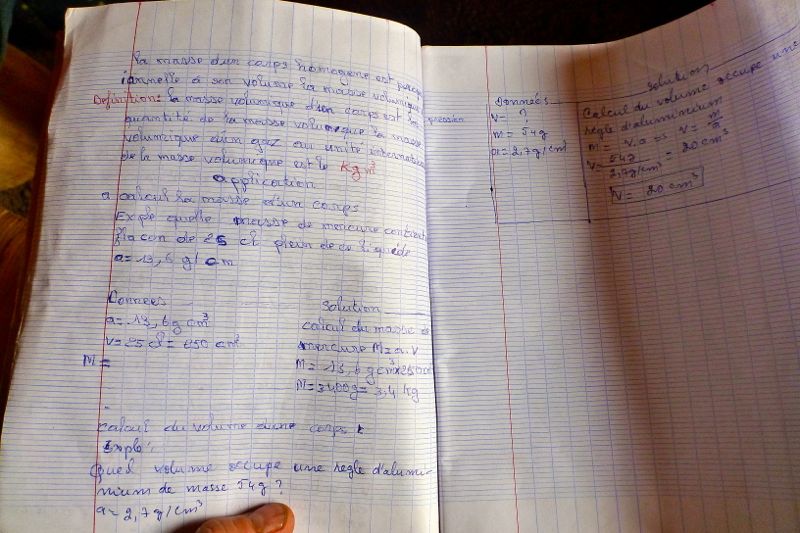 la masse d'un corps homogene est propo
ionnelle à son volume la masse volumique
Definition: la masse volumique d'un corps est la
quantité de la masse volumique la masse
volumique d'un gaz au unité internation
de la masse volumique est le Kg m³
application
a calcul la masse d'un corps
Exple quelle masse de mercure contient
flacon de 25 cl plein de ce liquide
a = 13,6 g/ cm
Données
a = 13,6 g cm³
V = 25 cl = 250 cm³
M =
Solution
calcul du masse de
mercure M = a.V
M = 13,6 g cm³ x 250 c
M = 3400g = 3,4 Kg
calcul du volume d'une corps
Exple:
Quel volume occupe une regle d'alumi-
nium de masse 54g ?
a = 2,7g/cm³
Données
V = ?
m = 54g
a = 2,7g/cm³
Solution
Calcul du volume occupe une
regle d'aluminium
m = v.a => V = m/a
V = 54g/2,7g/cm³ = 20 cm³
V = 20 cm³